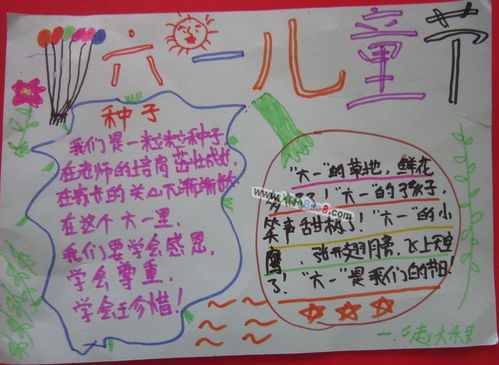 六一儿童节
种子
我们是一粒粒种子,
在老师的培育茁壮成长,
在家长的关心下渐渐
在这个六一里,
我们要学会感恩,
学会尊重,
学会珍惜!
"六一"的草地,鲜花
了!"六一"的孩子,
笑声甜极了,"六一"的小
鹰,张开翅膀,飞上天空
了!"六一"是我们的节日!